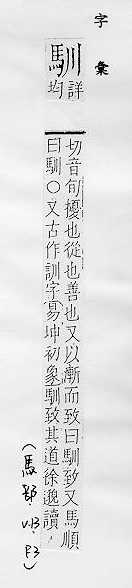 字彙
馴 詳均
切音旬擾也從也善也又以漸而致曰馴致又馬順
曰馴○又古作訓字易坤初象馴致其道徐邈讀,
(馬部, v.13, P3)